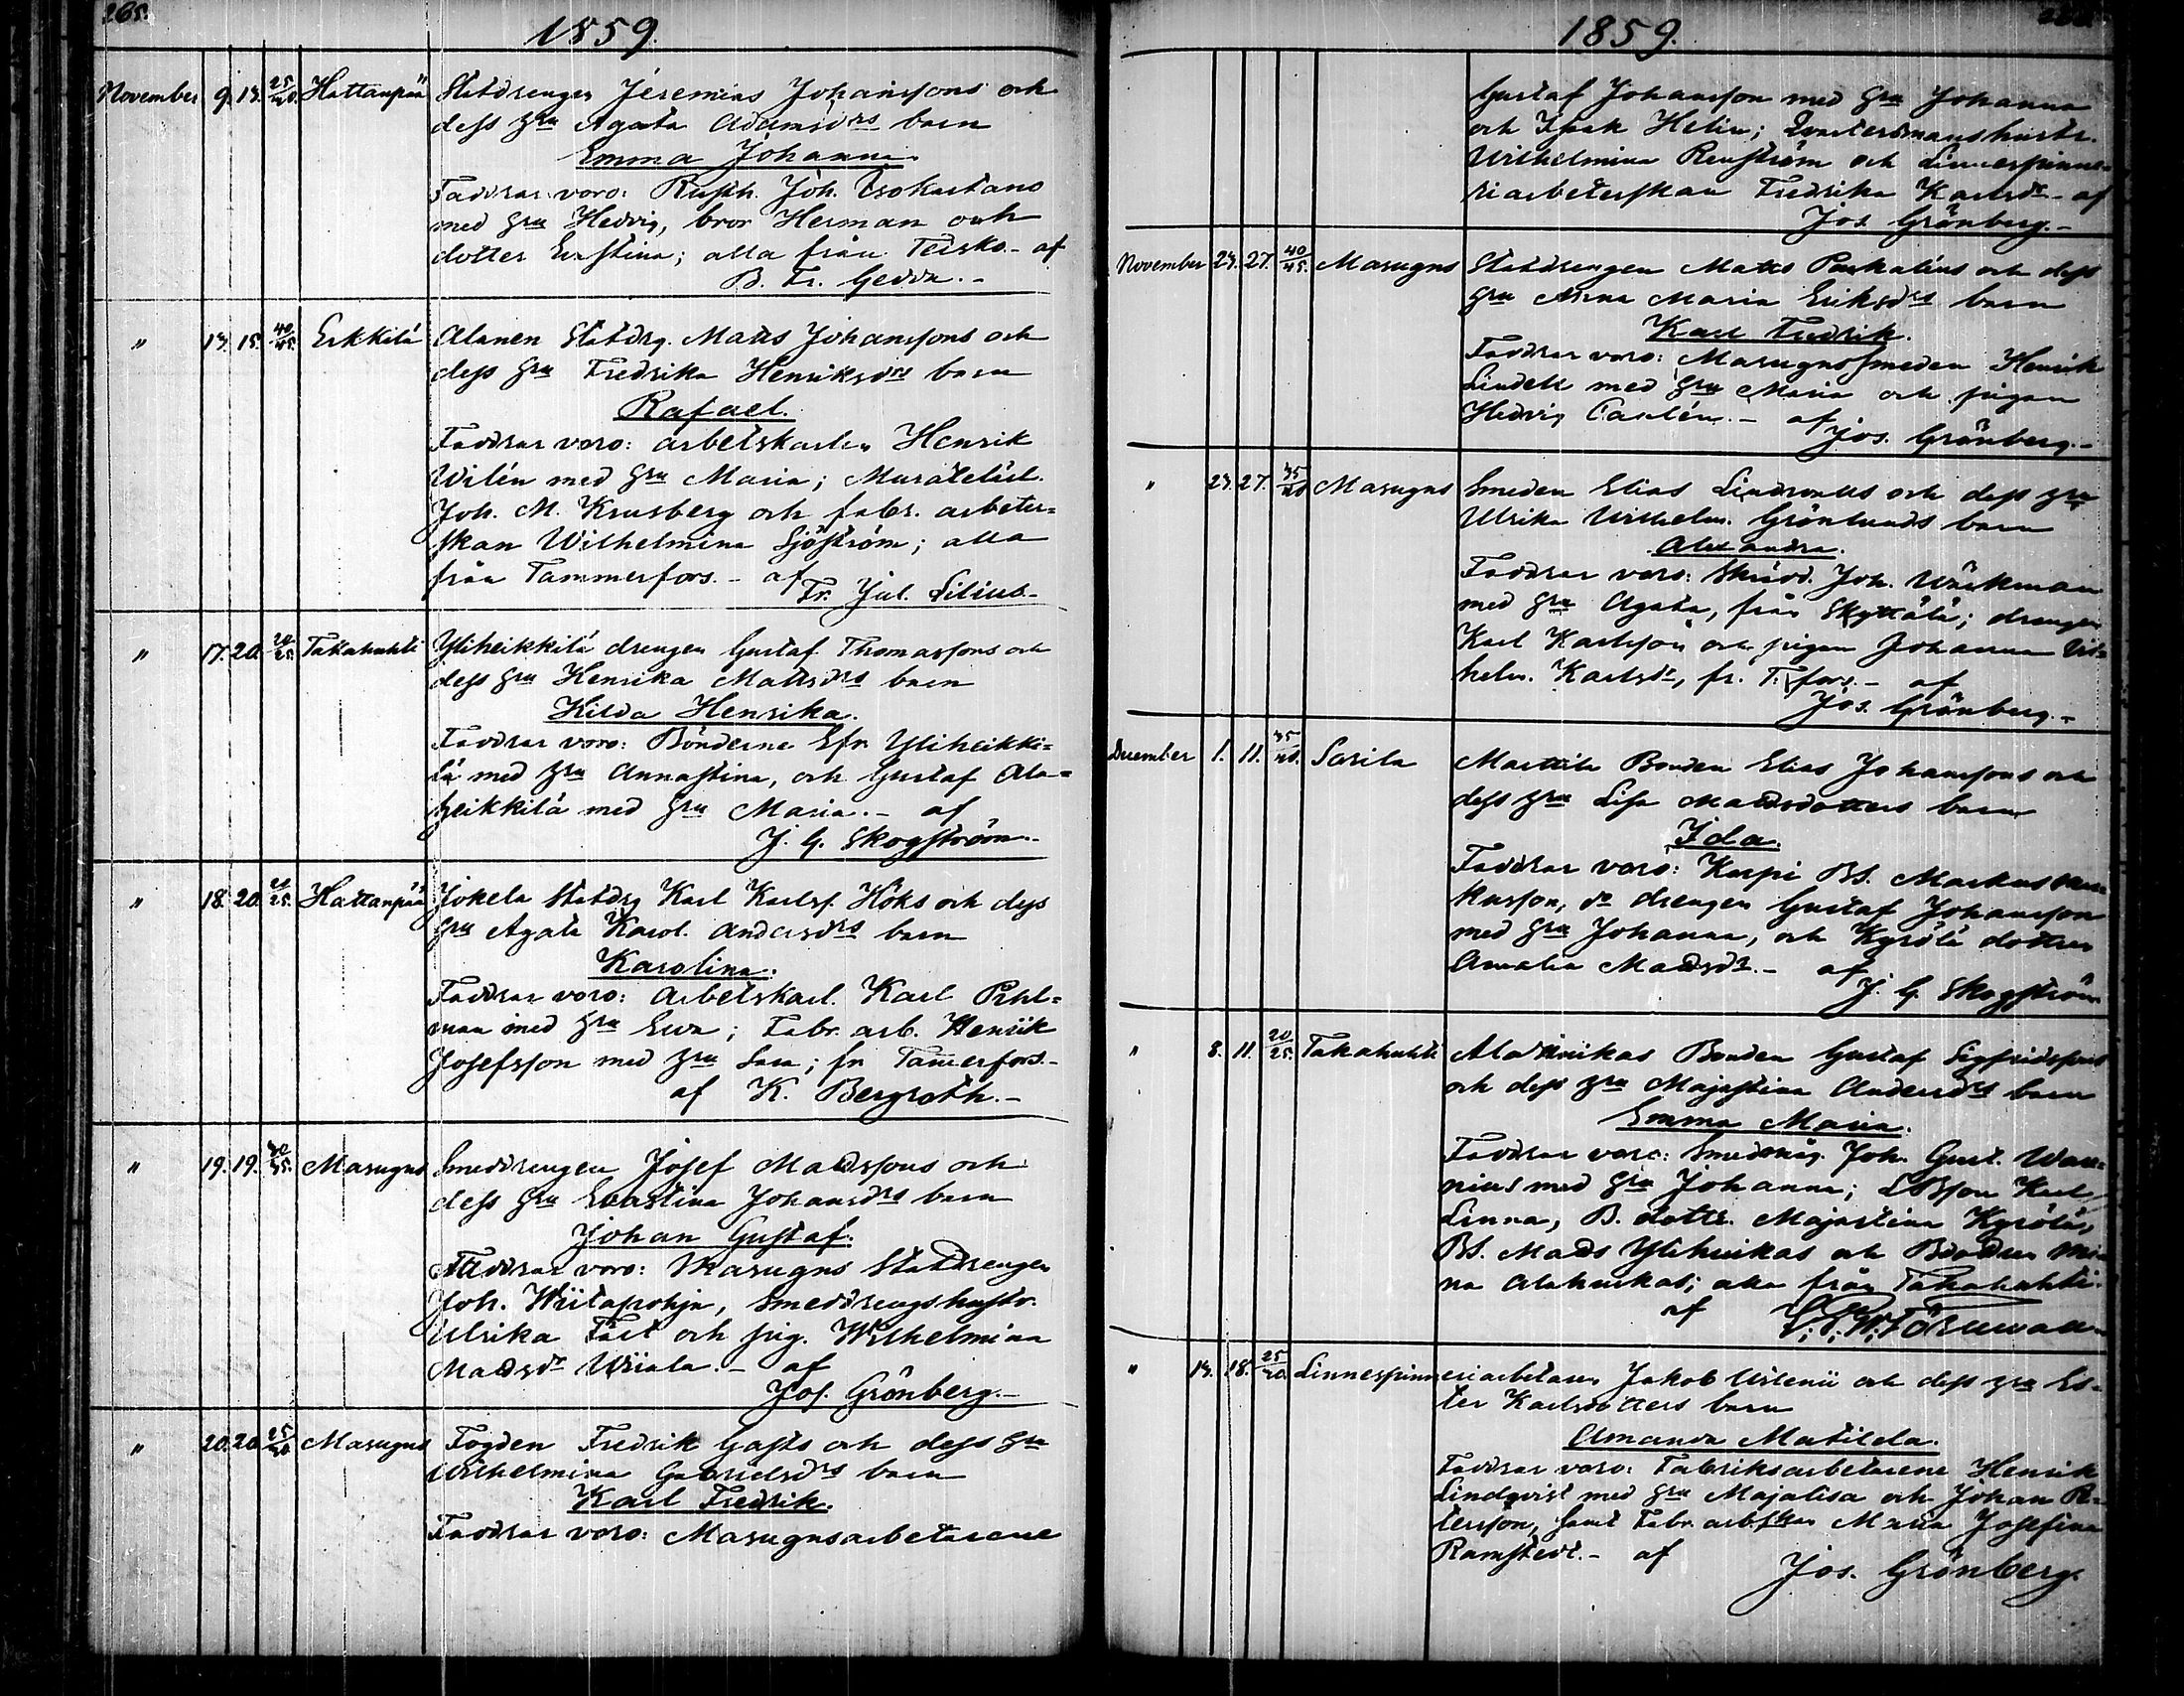 265.
1859.
November 9. 13. 25/30. Hattanpää Statdrengen Jeremias Johanssons och
dess hru Agata Adamsdrs barn
Emma Johanna.
Faddrar voro: Rusth. Joh. Isokartano
med hru Hedvig, bror Herman och
dotter Evastina; alla från Teisko. - af
B. Fr. Gedda. -
" 13. 15. 40/45. Erkkilä Alanen Statdrg. Matts Johanssons och
dess hru Fredrika Henriksdrs barn
Rafael.
Faddrar voro: arbetskarlen Henrik
Wilén med hru Maria; Murarelärl.
Joh. M. Krusberg och fabr. arbeter=
skan Wilhelmina Sjöström; alla
från Tammerfors. - af
Fr. Jul. Lilius. -
" 17. 20. 20/25. Takahuhti Yliheikkilä drengen Gustaf Thomassons och
dess hru Henrika Mattsdrs barn
Hilda Henrika.
Faddrar voro: Bönderne Efr. Yliheikki=
lä med hru Annastina, och Gustaf Ala=
heikkilä med hru Maria. - af
J. G. Skogström. -
" 18. 20. 20/25. Hattanpää Jokela Statdrg Karl Karlss. Höks och dess
hru Agata Karol. Andersdrs barn
Karolina.
Faddrar voro: Arbetskarl. Karl Pihl=
man med hru Ewa; Fabr. arb. Henrik
Josefsson med hru Sara; fr. Tamerfors. -
af K. Bergroth. -
" 19. 19. 30/35. Masugns Smeddrengen Josef Madssons och
dess hru Evastina Johansdrs barn
Johan Gustaf.
Faddrar voro: Masugns Statdrengen
Joh. Wiitapohja, Smeddrengshustr.
Ulrika Fält och pig. Wilhelmina
Madsdr Wiiala. - af
Jos. Grönberg. -
" 20. 20. 25/30 Masugns Fogden Fredrik Gasts och dess hru
Wilhelmina Gabrielsdrs barn
Karl Fredrik.
Faddrar voro: Masugnsarbetarene
1859.
Gustaf Johansson med hru Johanna
och Isaak Helin; Qvartersmanshustr.
Wilhelmina Renström och Linnespinne=
riarbeterskan Fredrika Karlsdr - af
Jos. Grönberg. -
November 23. 27. 40/45. Masugns Statdrengen Matts Paskalius och dess
hru Anna Maria Eriksdrs barn
Karl Fredrik.
Faddrar voro: Masugnssmeden Henrik
Lindell med hru Maria och pigan
Hedvig Carlén. - af
Jos. Grönberg. -
" 23. 27. 35/40 Masugns Smeden Elias Lindroths och dess hru
Ulrika Wilhelm. Grönlunds barn
Alexandra.
Faddrar voro: Skrädd. Joh. Wärkman
med hru Agata, från Skyttälä; drengen
Karl Karlsson och pigan Johanna Vil=
helm. Karlsdr, fr. T:fors. - af
Jos. Grönberg. -
December 1. 11. 35/40. Sorila Marttila Bonden Elias Johanssons och
dess hru Lisa Madsdotters barn
Ida.
Faddrar voro: Karpi BS. Markus Mar=
kusson, do drengen Gustaf Johansson
med hru Johanna, och Kyrölä dottren
Amalia Madsdr. - af
J. G. Skogström
" 8. 11. 20/25. Takahuhti Alahuikas Bonden Gustaf Sigfridssons
och dess hru Majastina Andersdrs barn
Emma Maria.
Faddrar voro: Smedmäg. Joh. Gust. Wau=
nius med hru Johanna; Karl
Linna, B. dottr. Majastina Kyrölä,
BS. Mads Ylihuikas och Mi=
na Alahuikas; alla från Takahuhti.
af
" 13. 18. 25/30. Linnespinneriarbetaren Jakob Wilenii och dess hru Es=
ter Karlsdotters barn
Amanda Matilda.
Faddrar voro: Fabriksarbetarene Henrik
Lindqvist med hru Majalisa och Johan Pe=
tersson, samt Fabr. arb.skan Maria Josefina
Ramstedt. - af
Jos. Grönberg.